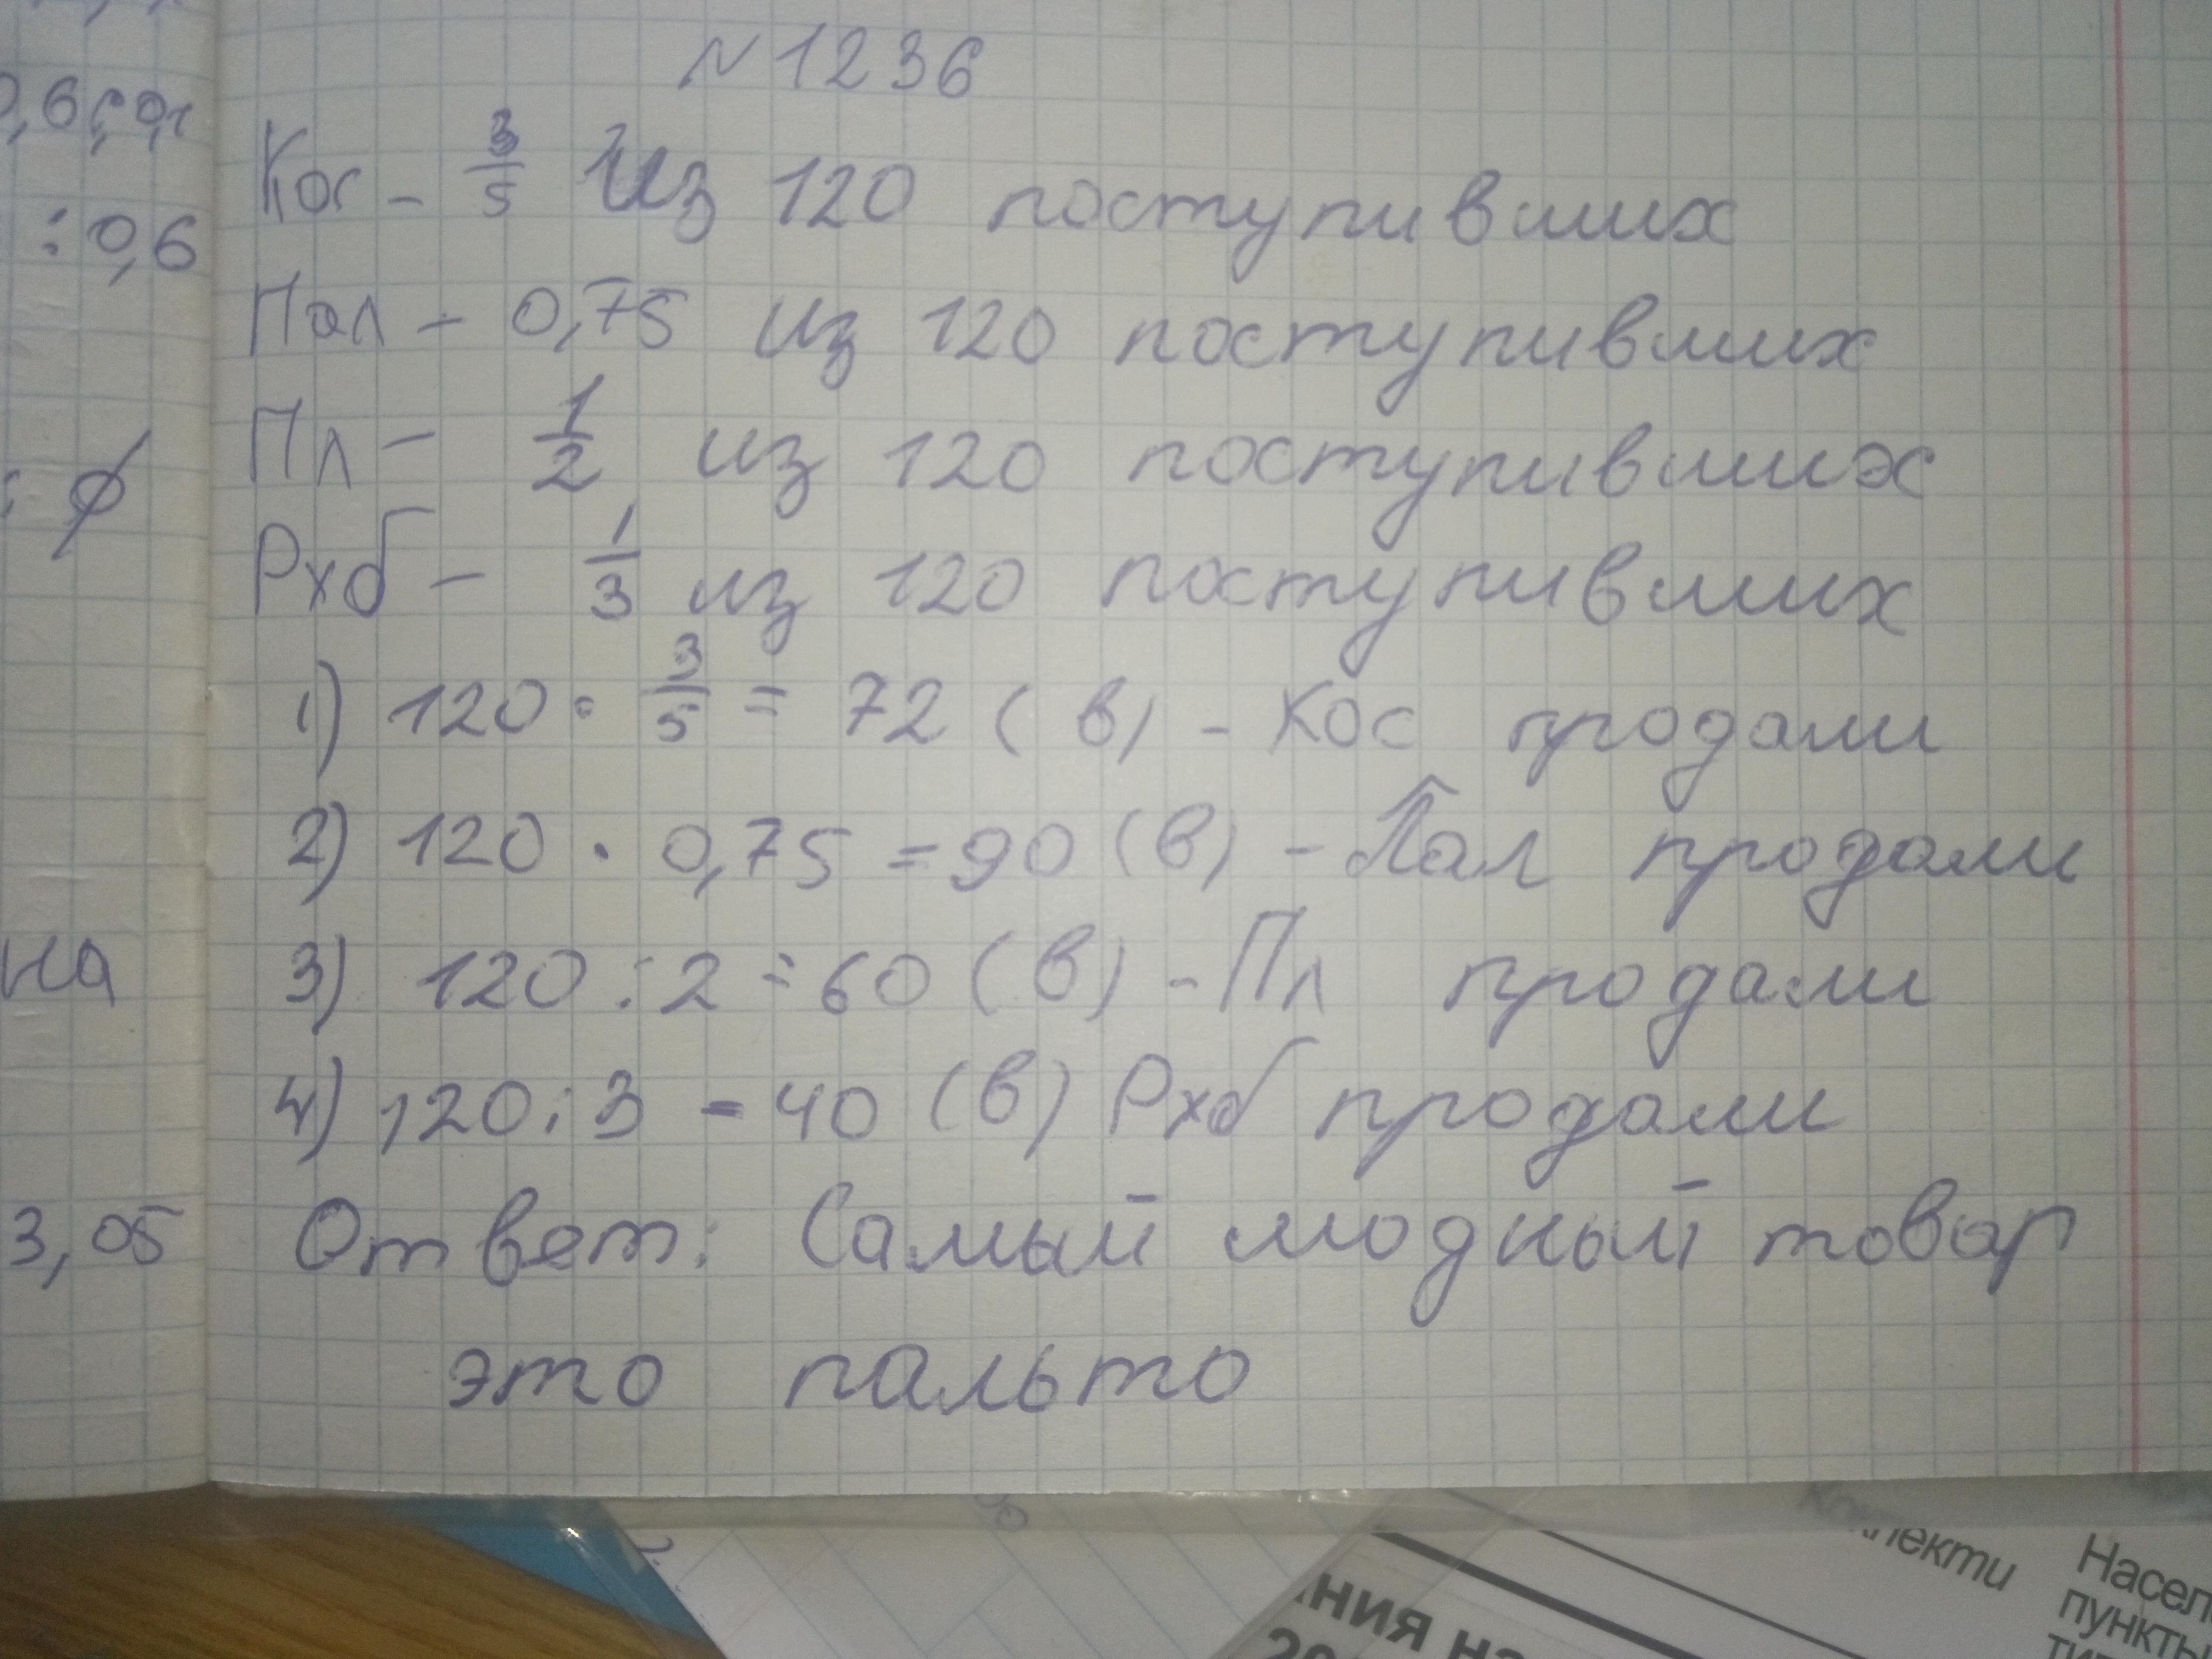 0,6
:0,6
на
3,05
№1236
Кос - 3/5 Из 120 поступивших
Пал - 0,75 из 120 поступивших
Пл - 1/2 из 120 поступивших
Рхб - 1/3 из 120 поступивших
1) 120 · 3/5 = 72 (в) - Кос продали
2) 120 · 0,75 = 90 (в) - Пал продали
3) 120 : 2 = 60 (в) - Пл продали
4) 120 : 3 = 40 (в) Рхб продали
Ответ: Самый модный товар
это пальто
Насел
пункты